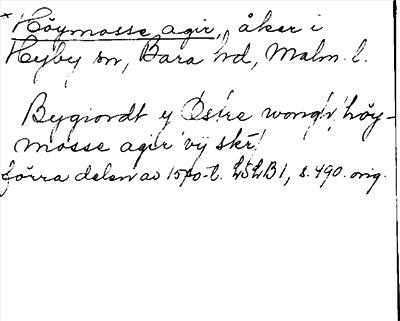 *Höymosse agir, åker i
Hyby sn, Bara hd, Malm. l.
Bygiordt y Östre wong: höy-
mosse agir vij skr
förra delen av 1570-t. LSLB1, s. 490. orig.